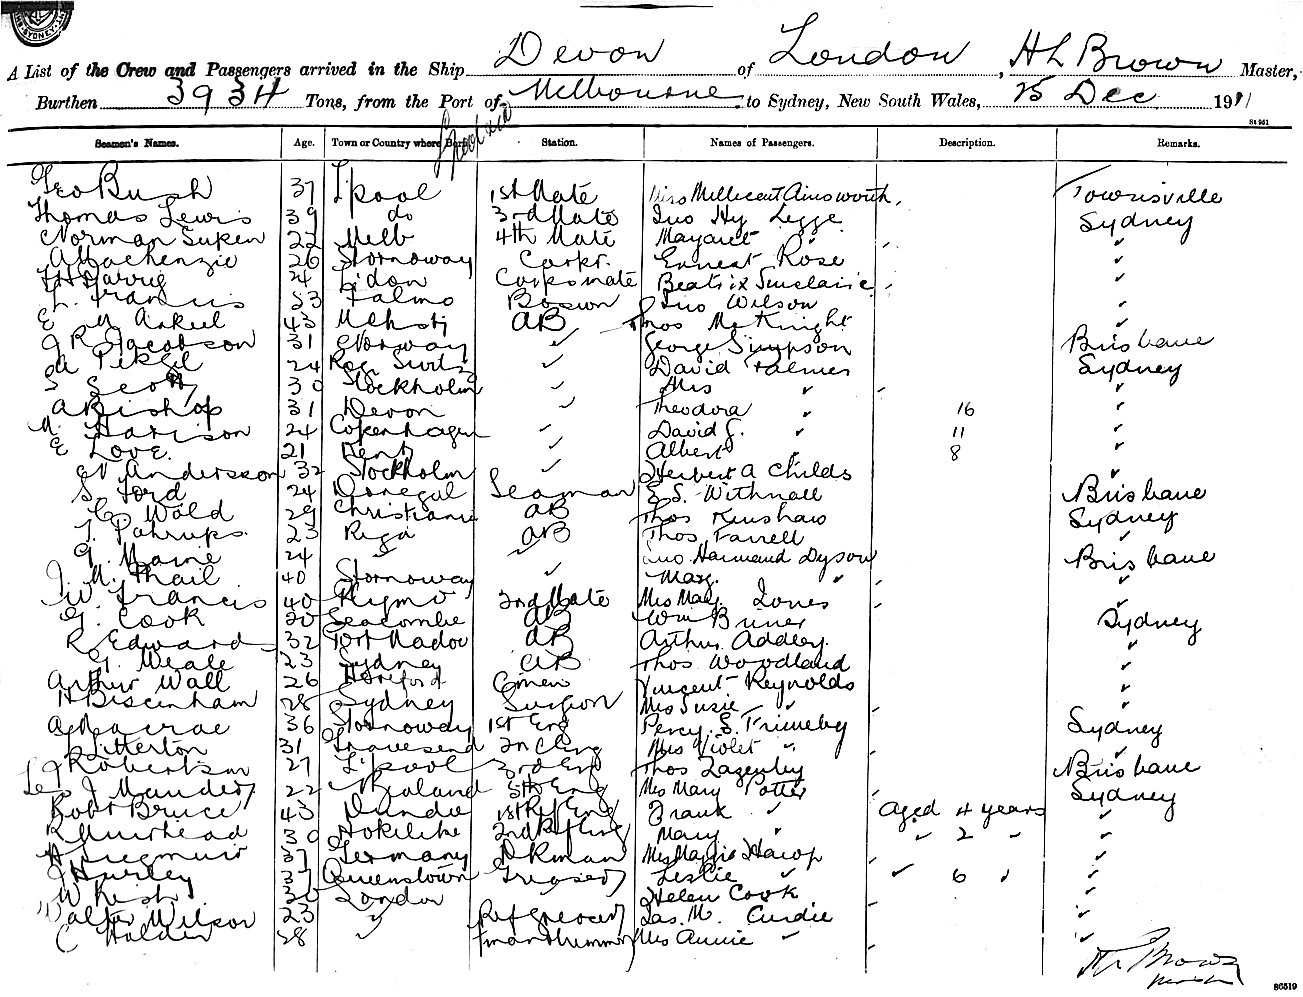 SYDNEY
A List of the Crew and Passengers arrived in the Ship Devon of London, H L Brown Master,
Burthen 3934 Tons, from the Port of Melbourne to Sydney, New South Wales, 25 Dec 1911
St 951
Seamen's Names. Age. Town or Country where Born Station. Names of Passengers. Description. Remarks.
Geo Bush 37 L'pool 1st Mate Miss Millicent Ainsworth, Townsville
Thomas Lewis 39 do 3rd Mate Jno Hy Legge Sydney
Norman 22 Melb 4th Mate Margaret "
A Mackenzie 26 Stornoway Carpr. Ernest Rose "
24 Beatrix Sinclair "
L. Francis 53 Falmo Bosun Jno Wilson "
E 43 AB Thos McKnight "
J R Jacobson 31 Norway " George Simpson Brisbane
A 24 " David Palmer Sydney
S Scott 30 Stockholm " Mrs " "
A Bishop 31 Devon " Theodora 16 "
Harison 24 Copenhagen " David J. " 11 "
E Love. 21 Kent " Albert " 8 "
N Andersson 32 Stockholm " Herbert A Childs "
S. Ford 24 Donegal Seaman S. Withnall Brisbane
Wold 29 Christiania AB Thos Kinshaw Sydney
23 Riga AB Thos Farrell "
24 " " Jno Harmand Dyson Brisbane
40 Stornoway " Mary. " "
W. Francis 40 Plymo 2nd Mate Mrs Mary Jones "
G. Cook 20 Seacombe AB Wm Sydney
R Edwards 32 Port Madoc AB Arthur Addley. "
G. Weale 23 Sydney AB Thos Woodland "
Arthur Wall 26 Hereford Vincent Reynolds "
H 28 Sydney Surgeon Mrs Susie " "
A Macrae 36 Stornoway 1st Eng Percy S. Sydney
Litterton 31 Gravesend 2n Eng Mrs Violet " "
Robertson 27 L'pool 3rd Eng Thos Lazenby Brisbane
22 5th Eng Mrs Mary Potter Sydney
Robt Bruce 43 Dundee 1st Ref Eng Frank " aged 4 years "
R Muirhead 30 Hokitika 2nd Mary " " 2 " "
37 Germany Dkman Mrs Maggie "
J Hurley 37 Queenstown Greaser Leslie " " 6 " "
W 30 London " Helen Cook "
Walter Wilson 23 " Ref Greaser Jas. M. Curdie "
C Holder 28 " Mrs Annie " "
H L Brown
86519